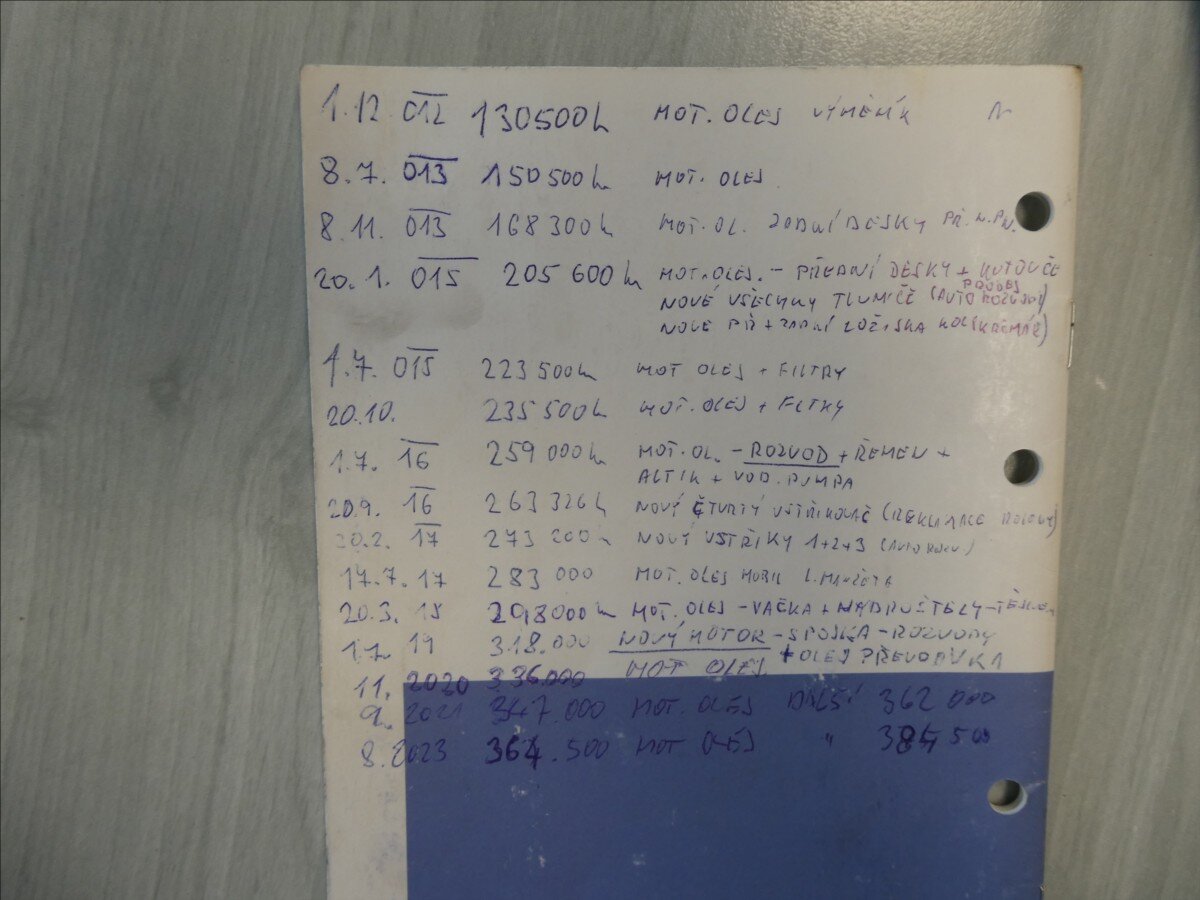 1.12 012 130500km MOT. OLEJ VÝMĚNÍK
8.7. 013 150 500km MOT. OLEJ
8.11. 013 168 300km MOT. OL. ZADNÍ DESKY PŘ.
20.1. 015 205 600km MOT. OLEJ. - PŘEDNÍ DESKY + KOTOUČE
NOVÉ VŠECHNY TLUMIČE (AUTO
NOVÉ PŘ + ZADNÍ LOŽISKA KOL
1.7. 015 223 500km MOT OLEJ + FILTRY
20.10. 235 500km MOT. OLEJ + FILTRY
1.7. 16 259 000km MOT. OL. - ROZVOD + ŘEMEN +
ALTIK + VOD. PUMPA
20.9. 16 263 326km NOVÝ ČTVRTÝ VSTŘIKOVAČ (REKLAMACE
20.2. 17 273 200km NOVÝ VSTŘIKY 1+2+3 (AUTO
17.7. 17 283 000 MOT. OLEJ MOBIL
20.3. 298000km MOT. OLEJ - VAČKA +
1.7. 19 318.000 NOVÝ MOTOR - SPOJKA - ROZVODY
+ OLEJ PŘEVODOVKA
11. 2020 336.000 MOT OLEJ
9. 2021 347.000 MOT. OLEJ DALŠÍ 362 000
8.2023 364.500 MOT OLEJ " 384 500